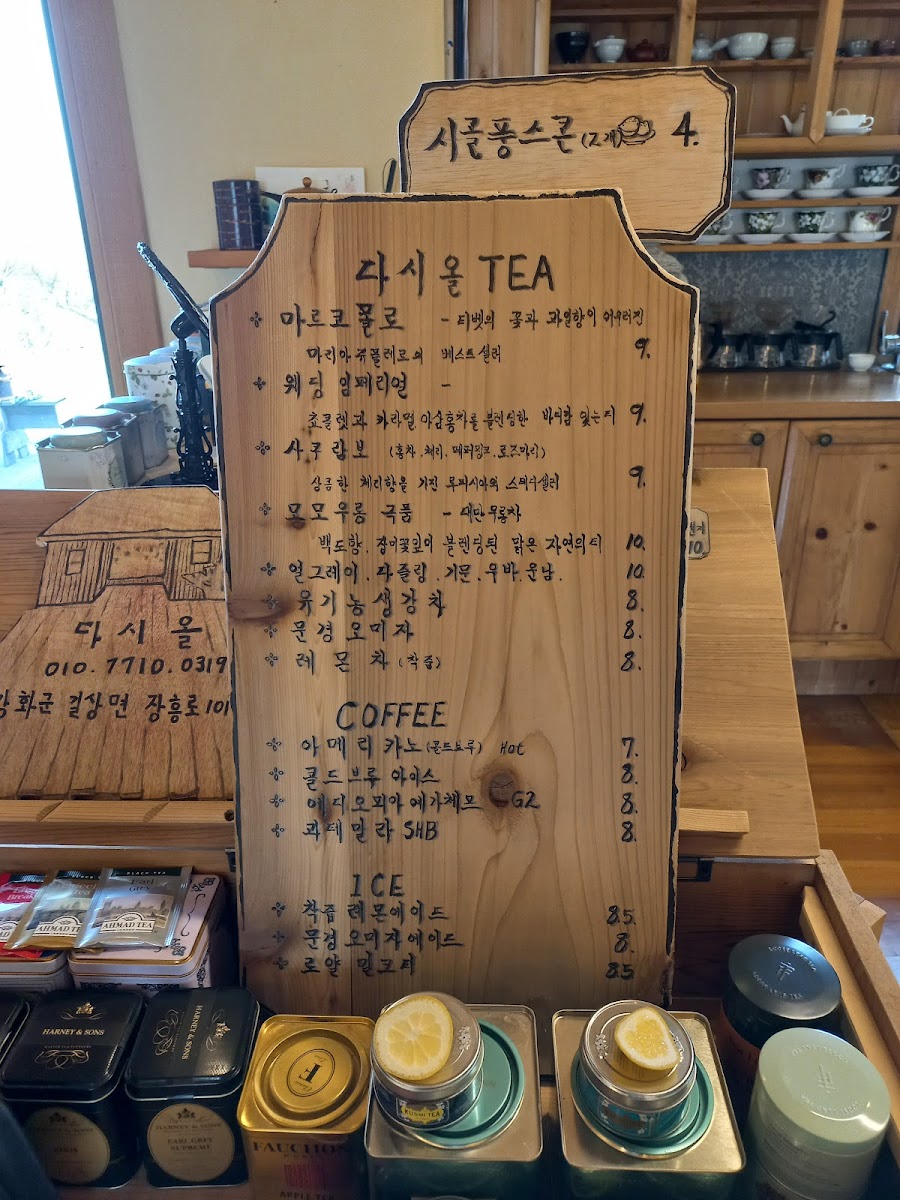 시골풍스콘 (2개) 4.
다시올 TEA
마르코폴로 - 티벳의 꽃과 과일향이 어우러진
마리아쥬플레르의 베스트셀러 9.
웨딩 임페리얼 -
쵸콜렛과 카라멜 아삼홍차를 블렌딩한 바디감 있는티 9.
사쿠람보 (홍차, 체리, 페퍼핑크, 로즈마리)
상큼한 체리향을 가진 루피시아의 스테디셀러 9.
모모우롱 극품 - 대만우롱차
백도향, 잡이꽃잎이 블렌딩된 맑은 자연의티 10.
얼그레이. 다즐링. 기문. 우바. 운남. 10.
유기농생강차 8.
문경오미자 8.
레몬차 (착즙) 8.
COFFEE
아메리카노 (콜드브루) Hot 7.
콜드브루 아이스 8.
에디오피아 예가체프 G2 8.
과테말라 SHB 8.
ICE
착즙 레몬에이드 8.5
문경오미자에이드 8.
로얄 밀크티 8.5
10.
다시올
010.7710.0319
강화군 길상면 장흥로101
BLACK TEA
Earl Grey
AHMAD TEA
AHMAD TEA
HARNEY & SONS
HARNEY & SONS
HARNEY & SONS
PARIS
HARNEY & SONS
EARL GREY
SUPREME
F
FAUCHON
APPLE TEA
KUSMI TEA